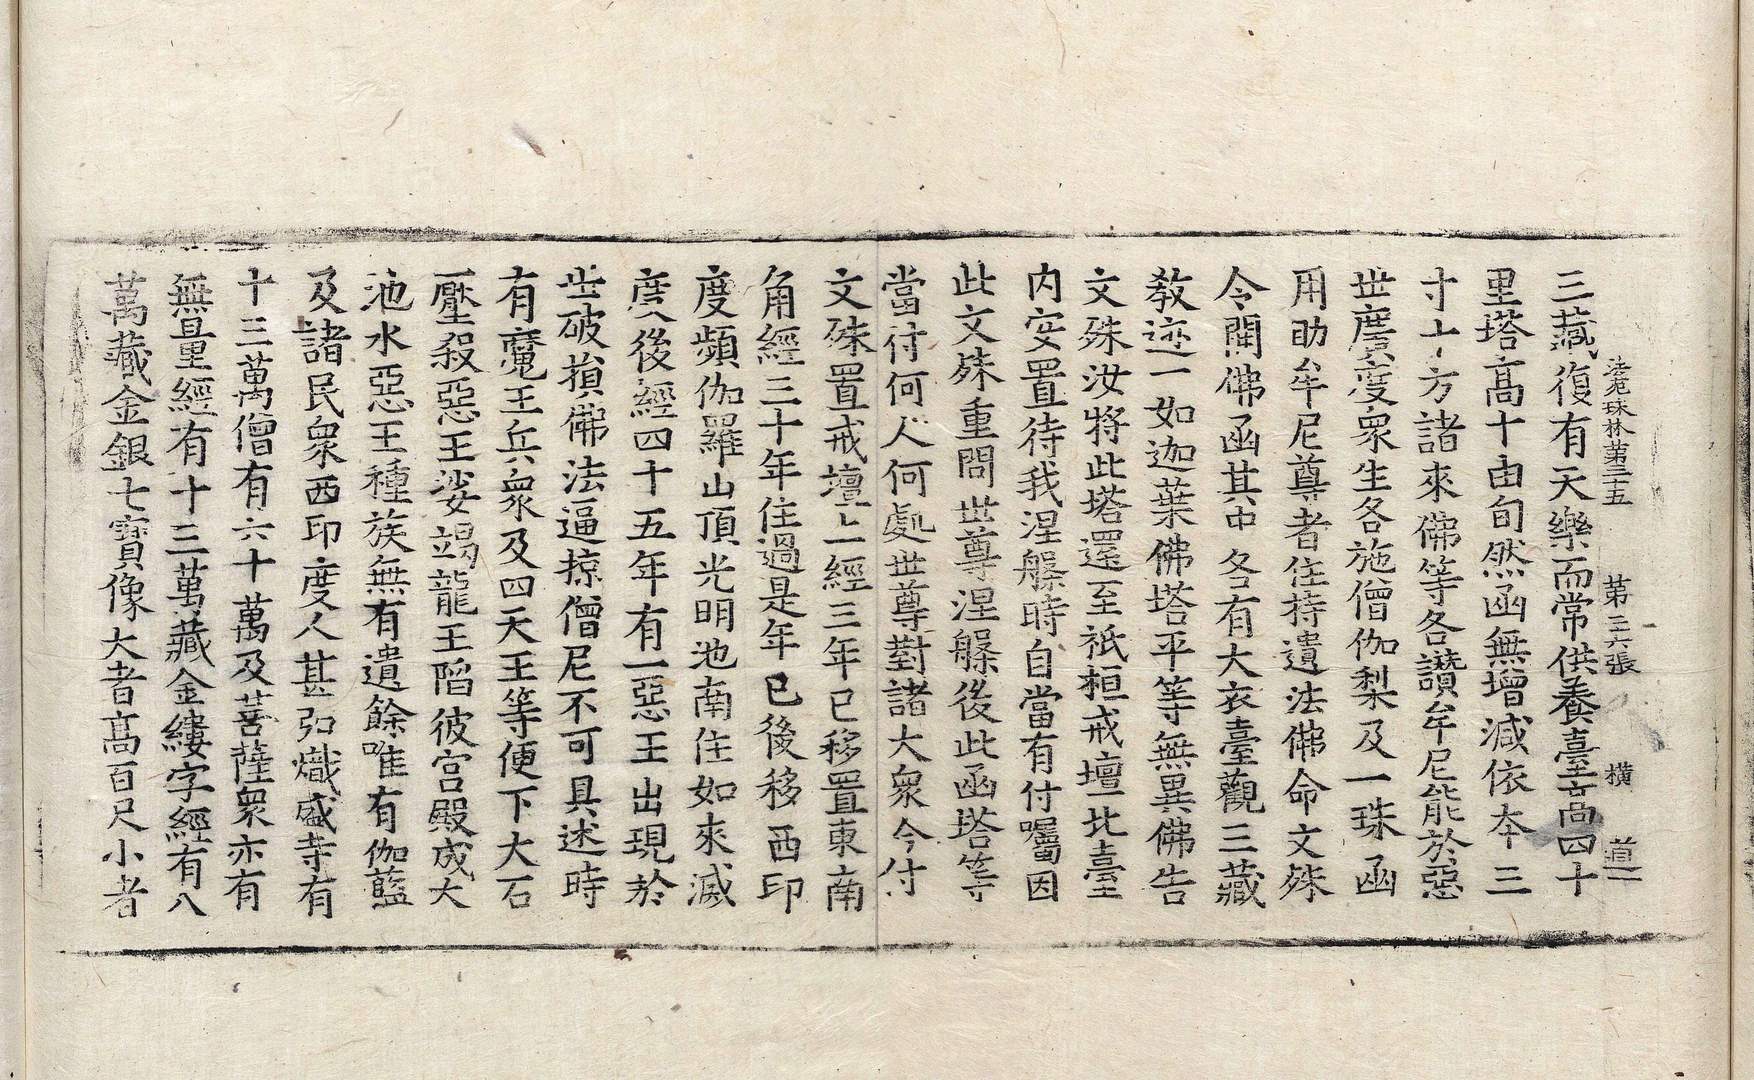 法苑珠林第三十五　第三六張　橫　道一
三藏復有天樂而常供養臺高四十
里塔高十由旬然函無增減依本三
寸十方諸來佛等各讚牟尼能於惡
世廣度衆生各施僧伽梨及一珠函
用助牟尼尊者住持遺法佛命文殊
令開佛函其中各有大衣臺觀三藏
教迹一如迦葉佛塔平等無異佛告
文殊汝將此塔還至祇桓戒壇北臺
内安置待我涅槃時自當有付囑因
此文殊重問世尊涅槃後此函塔等
當付何人何處世尊對諸大衆今付
文殊置戒壇上經三年已移置東南
角經三十年住過是年已後移西印
度頻伽羅山頂光明池南住如來滅
度後經四十五年有一惡王出現於
世破損佛法逼掠僧尼不可具述時
有魔王兵衆及四天王等便下大石
壓殺惡王娑竭龍王陷彼宮殿成大
池水惡王種族無有遺餘唯有伽藍
及諸民衆西印度人甚弘熾盛寺有
十三萬僧有六十萬及菩薩衆亦有
無量經有十三萬藏金縷字經有八
萬藏金銀七寶像大者高百尺小者